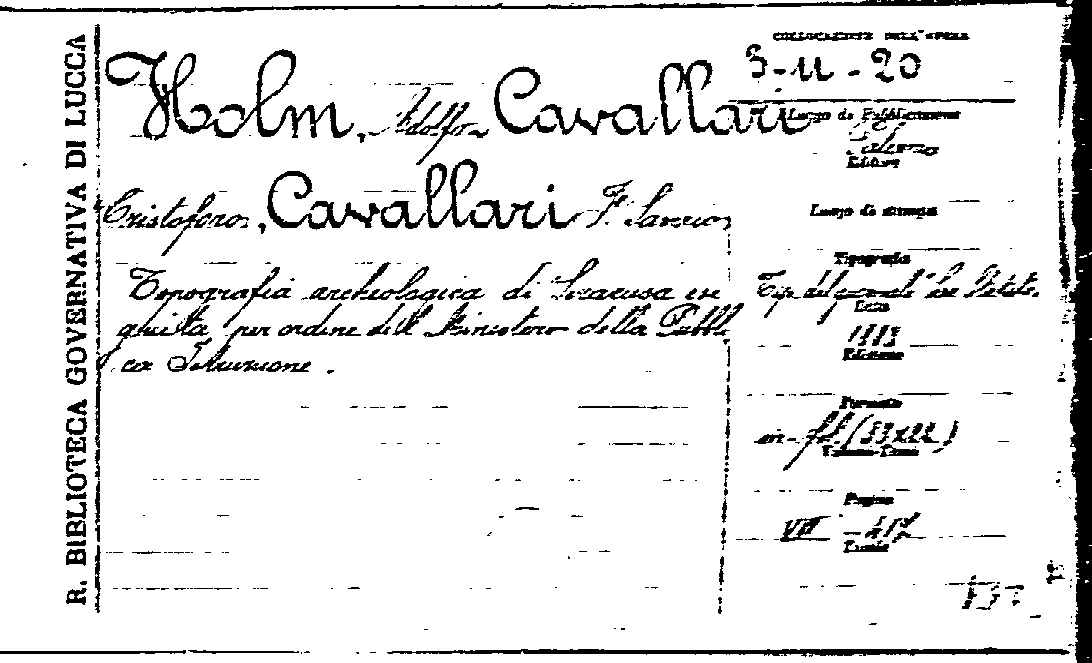 R. BIBLIOTECA GOVERNATIVA DI LUCCA
COLLOCAZIONE DELL'OPERA
3-11-20
Holm, Adolfo Cavallari
Cristoforo, Cavallari F. Saverio
Topografia archeologica di Siracusa ese
guita per ordine del Ministero della Pubbli
ca Istruzione.
Luogo di Pubblicazione
Palermo
Editore
Luogo di stampa
Tipografia
Tip. del giornale "Lo Statuto
Data
1883
Edizione
Formato
in-fol (33x22)
Volume-Tomo
Pagine
VIII - 417
Tavole